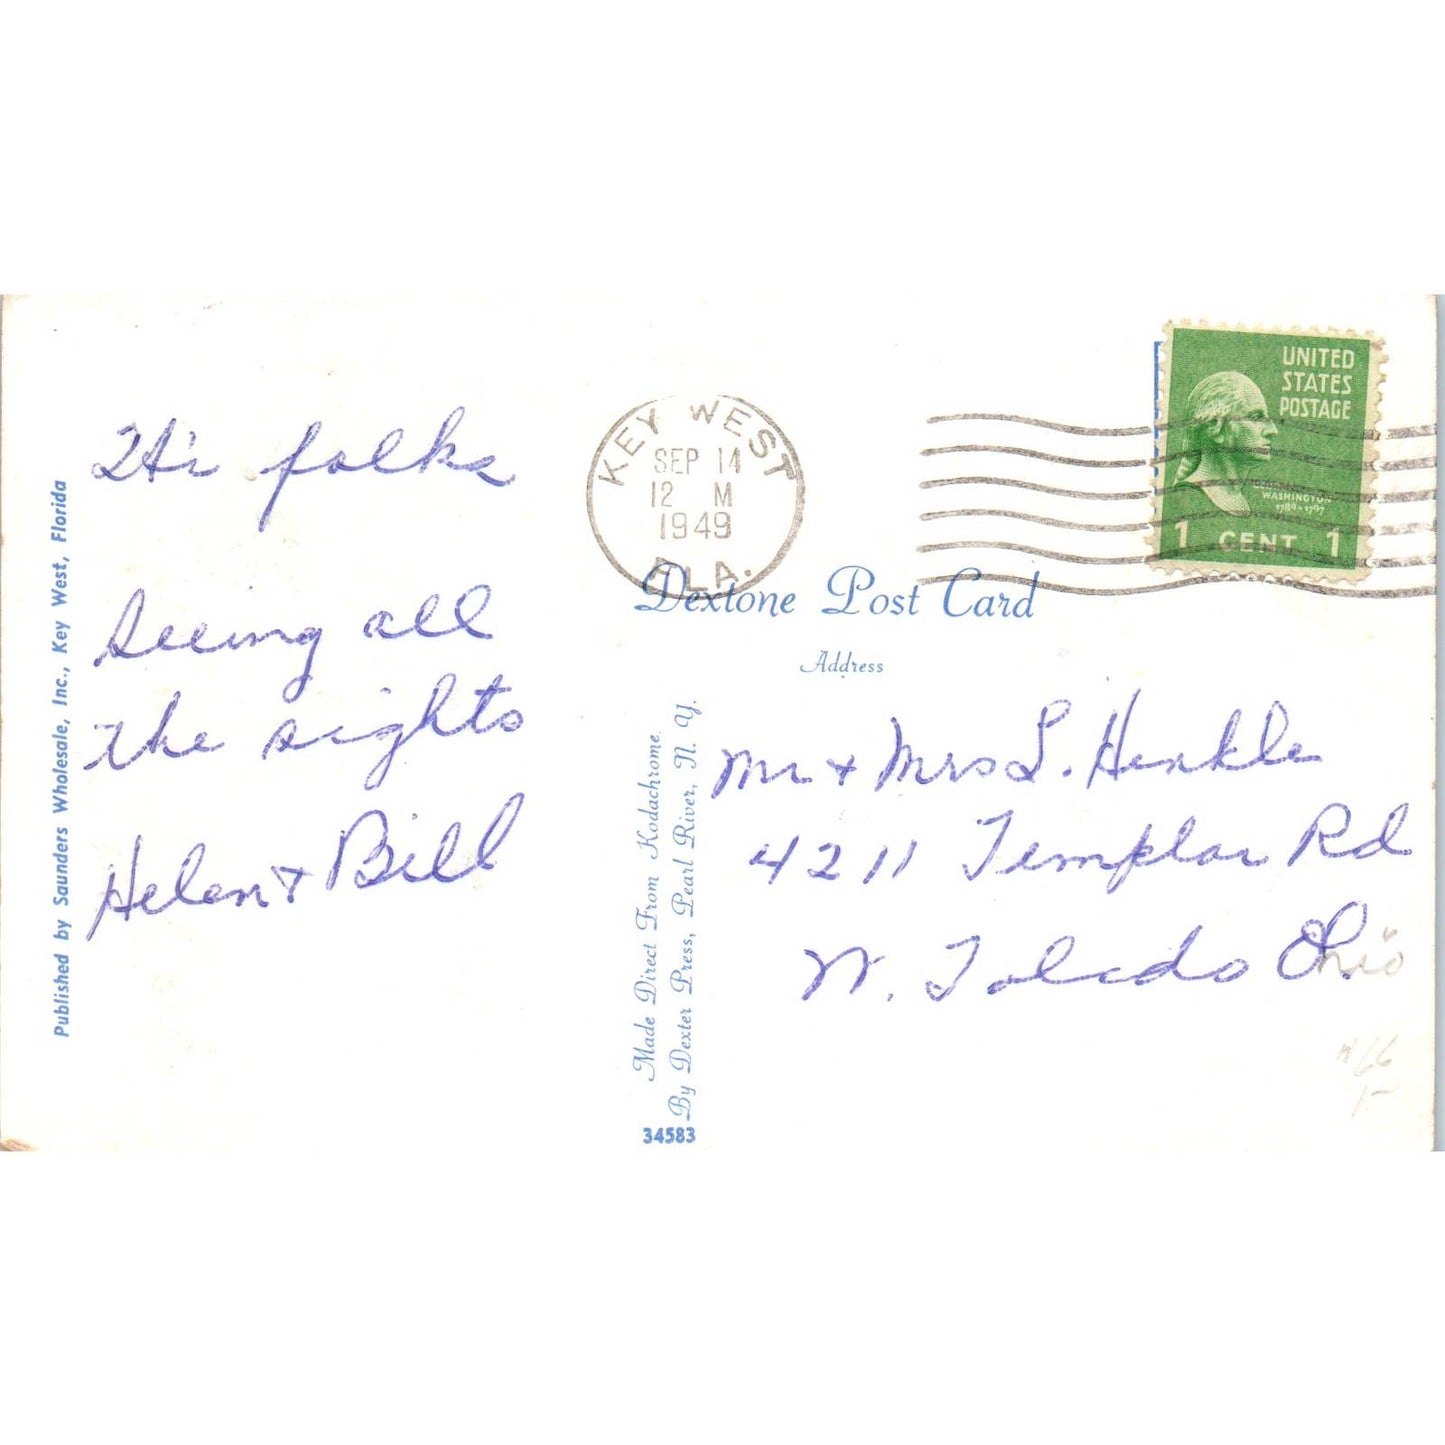 Hi folks
Seeing all
the sights
Helen + Bill
Published by Saunders Wholesale, Inc., Key West, Florida
KEY WEST
SEP 14
12 M
1949
FLA.
UNITED
STATES
POSTAGE
WASHINGTON
1789-1797
1 CENT 1
Dextone Post Card
Address
Made Direct From Kodachrome
By Dexter Press, Pearl River, N. Y.
34583
Mr + Mrs L. Henkle
4211 Templar Rd
W. Toledo Ohio